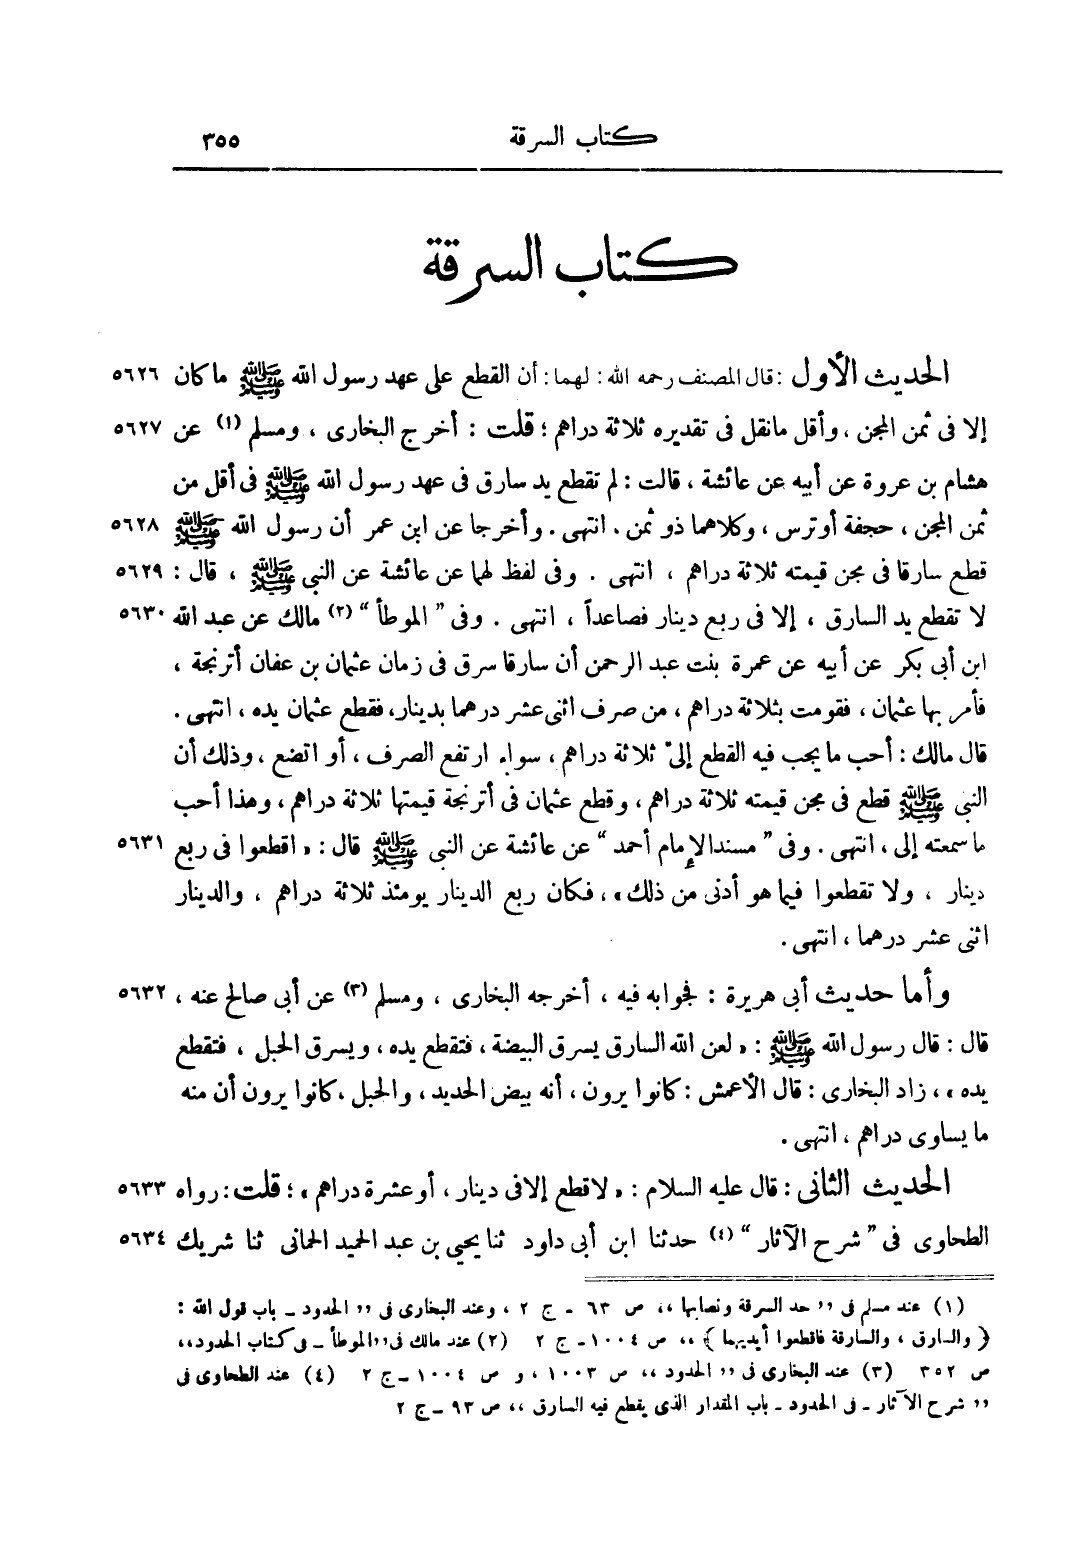 كتاب السرقة ٣٥٥
كتاب السرقة
الحديث الأول : قال المصنف رحمه الله : لهما : أن القطع على عهد رسول الله ﷺ ما كان ٥٦٢٦
إلا فى ثمن المجن ، وأقل مانقل فى تقديره ثلاثة دراهم ؛ قلت : أخرج البخارى ، ومسلم (١) عن ٥٦٢٧
هشام بن عروة عن أبيه عن عائشة ، قالت : لم تقطع يد سارق فى عهد رسول الله ﷺ فى أقل من
ثمن المجن ، حجفة أو ترس ، وكلاهما ذو ثمن . انتهى . وأخرجا عن ابن عمر أن رسول الله ﷺ ٥٦٢٨
قطع سارقا فى مجن قيمته ثلاثة دراهم ، انتهى . وفى لفظ لهما عن عائشة عن النبى ﷺ ، قال : ٥٦٢٩
لا تقطع يد السارق ، إلا فى ربع دينار فصاعداً ، انتهى . وفى " الموطأ " (٢) مالك عن عبد الله ٥٦٣٠
ابن أبى بكر عن أبيه عن عمرة بنت عبد الرحمن أن سارقا سرق فى زمان عثمان بن عفان أترنجة ،
فأمر بها عثمان ، فقومت بثلاثة دراهم ، من صرف اثنى عشر درهما بدينار، فقطع عثمان يده ، انتهى .
قال مالك : أحب ما يجب فيه القطع إلىّ ثلاثة دراهم ، سواء ارتفع الصرف ، أو اتضع ، وذلك أن
النبى ﷺ قطع فى مجن قيمته ثلاثة دراهم ، وقطع عثمان فى أترنجة قيمتها ثلاثة دراهم ، وهذا أحب
ما سمعته إلى ، انتهى . وفى " مسند الإمام أحمد " عن عائشة عن النبى ﷺ قال : « اقطعوا فى ربع ٥٦٣١
دينار ، ولا تقطعوا فيما هو أدنى من ذلك » ، فكان ربع الدينار يومئذ ثلاثة دراهم ، والدينار
اثنى عشر درهما ، انتهى .
وأما حديث أبى هريرة : فجوابه فيه ، أخرجه البخارى ، ومسلم (٣) عن أبى صالح عنه ، ٥٦٣٢
قال : قال رسول الله ﷺ : « لعن الله السارق يسرق البيضة ، فتقطع يده ، ويسرق الحبل ، فتقطع
يده » ، زاد البخارى : قال الأعمش : كانوا يرون ، أنه بيض الحديد ، والحبل ، كانوا يرون أن منه
ما يساوى دراهم ، انتهى .
الحديث الثانى : قال عليه السلام : « لا قطع إلا فى دينار ، أو عشرة دراهم » ؛ قلت : رواه ٥٦٣٣
الطحاوى فى " شرح الآثار " (٤) حدثنا ابن أبى داود ثنا يحيى بن عبد الحميد الحمانى ثنا شريك ٥٦٣٤
(١) عند مسلم فى ,, حد السرقة ونصابها ,, ص ٦٣ ـ ج ٢ ، وعند البخارى فى ,, الحدود ـ باب قول الله :
﴿ والسارق ، والسارقة فاقطعوا أيديهما ﴾ ,, ص ١٠٠٤ ـ ج ٢ (٢) عند مالك فى ,, الموطأ ـ فى كتاب الحدود ,,
ص ٣٥٢ (٣) عند البخارى فى ,, الحدود ,, ص ١٠٠٣ ، و ص ١٠٠٤ ـ ج ٢ (٤) عند الطحاوى فى
,, شرح الآثار ـ فى الحدود ـ باب المقدار الذى يقطع فيه السارق ,, ص ٩٣ ـ ج ٢